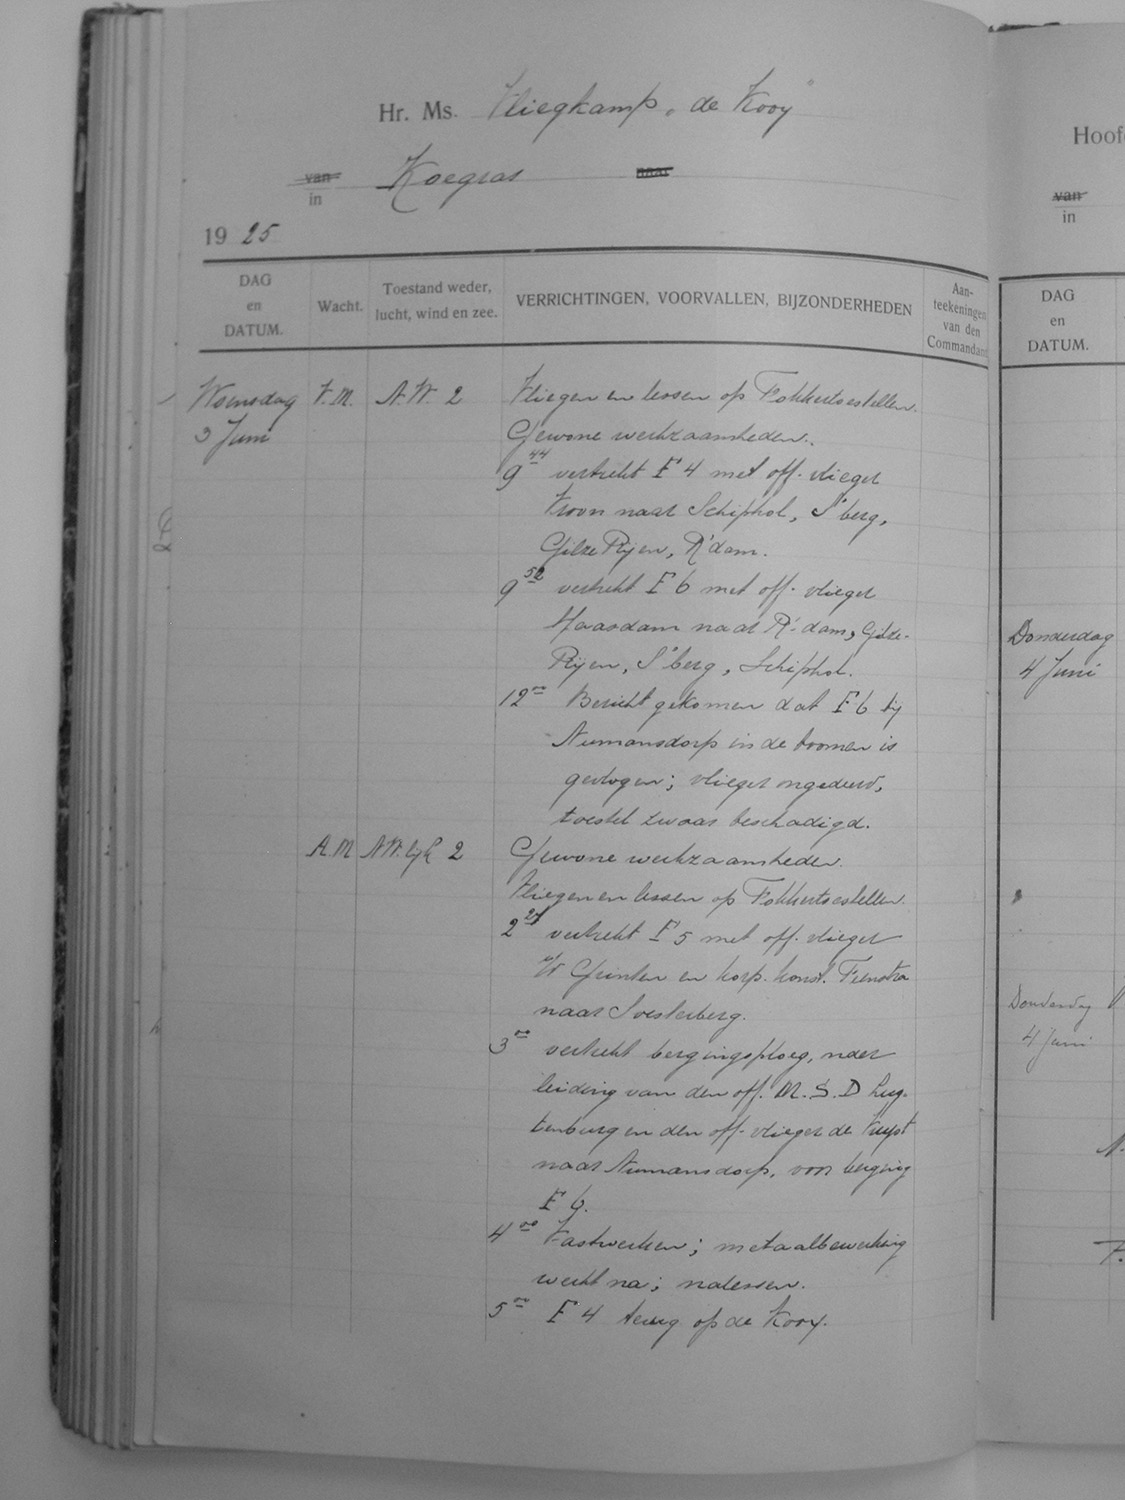 Hr. Ms. Vliegkamp "de Kooy"
van Koegras naar
in
1925
DAG en DATUM. Wacht. Toestand weder, lucht, wind en zee. VERRICHTINGEN, VOORVALLEN, BIJZONDERHEDEN Aan-teekeningen van den Commandant
Woensdag V.M. N.W. 2 Vliegen en lessen op Fokkertoestellen.
3 Juni Gewone werkzaamheden.
9 44 vertrekt F 4 met off. vlieger
Kroon naar Schiphol, S'berg,
Gilze Rijen, R'dam.
9 52 vertrekt F 6 met off. vlieger
Haasdam naar R'dam, Gilze-
Rijen, S'berg, Schiphol.
12 00 Bericht gekomen dat F 6 bij
Numansdorp in de boomen is
gevlogen; vlieger ongedeerd,
toestel zwaar beschadigd.
A.M. 2 Gewone werkzaamheden.
Vliegen en lessen op Fokkertoestellen.
2 27 vertrekt F 5 met off. vlieger
en korp. konst. Feenstra
naar Soesterberg.
3 00 vertrekt bergingsploeg, onder
leiding van den off. M.S.D Lug-
tenburg en den off. vlieger de
naar Numansdorp, voor berging
F 6.
4 00 Vastwerken; metaalbewerking
werkt na; nalessen.
5 00 F 4 terug op de Kooy.
Hoof
van
in
DAG
en
DATUM.
Donderdag
4 Juni
Donderdag V
4 Juni